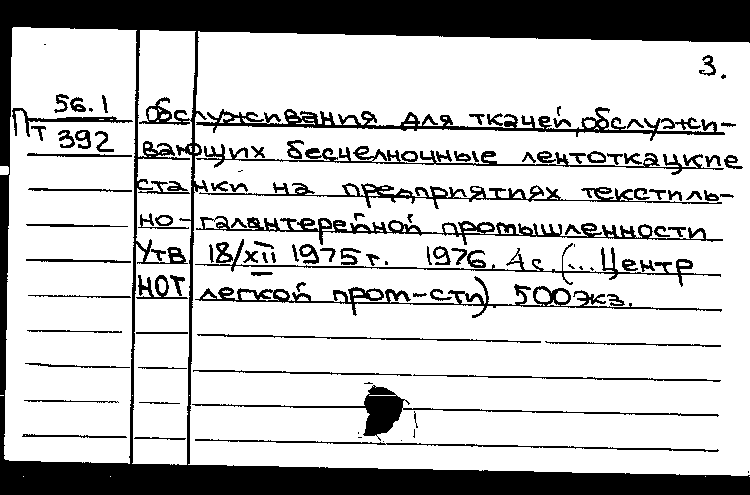 3.
56.1 обслуживания для ткачей, обслужи-
Пт 392 вающих бесчелночные лентоткацкие
станки на предприятиях текстиль-
но-галантерейной промышленности
Утв 18/XII 1975 г. 1976. 4 с. (...Центр
НОТ легкой пром-сти). 500 экз.